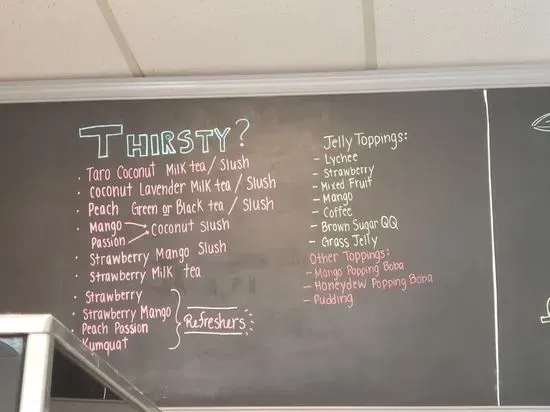 THIRSTY?
· Taro Coconut Milk tea / Slush
· coconut Lavender Milk tea / Slush
· Peach Green or Black tea / Slush
· Mango
Passion coconut slush
· Strawberry Mango Slush
· Strawberry Milk tea
· Strawberry
· Strawberry Mango
Peach Passion
Kumquat
Refreshers
Jelly Toppings:
- Lychee
- Strawberry
- Mixed Fruit
- Mango
- Coffee
- Brown Sugar QQ
- Grass Jelly
Other Toppings:
- Mango Popping Boba
- Honeydew Popping Boba
- Pudding